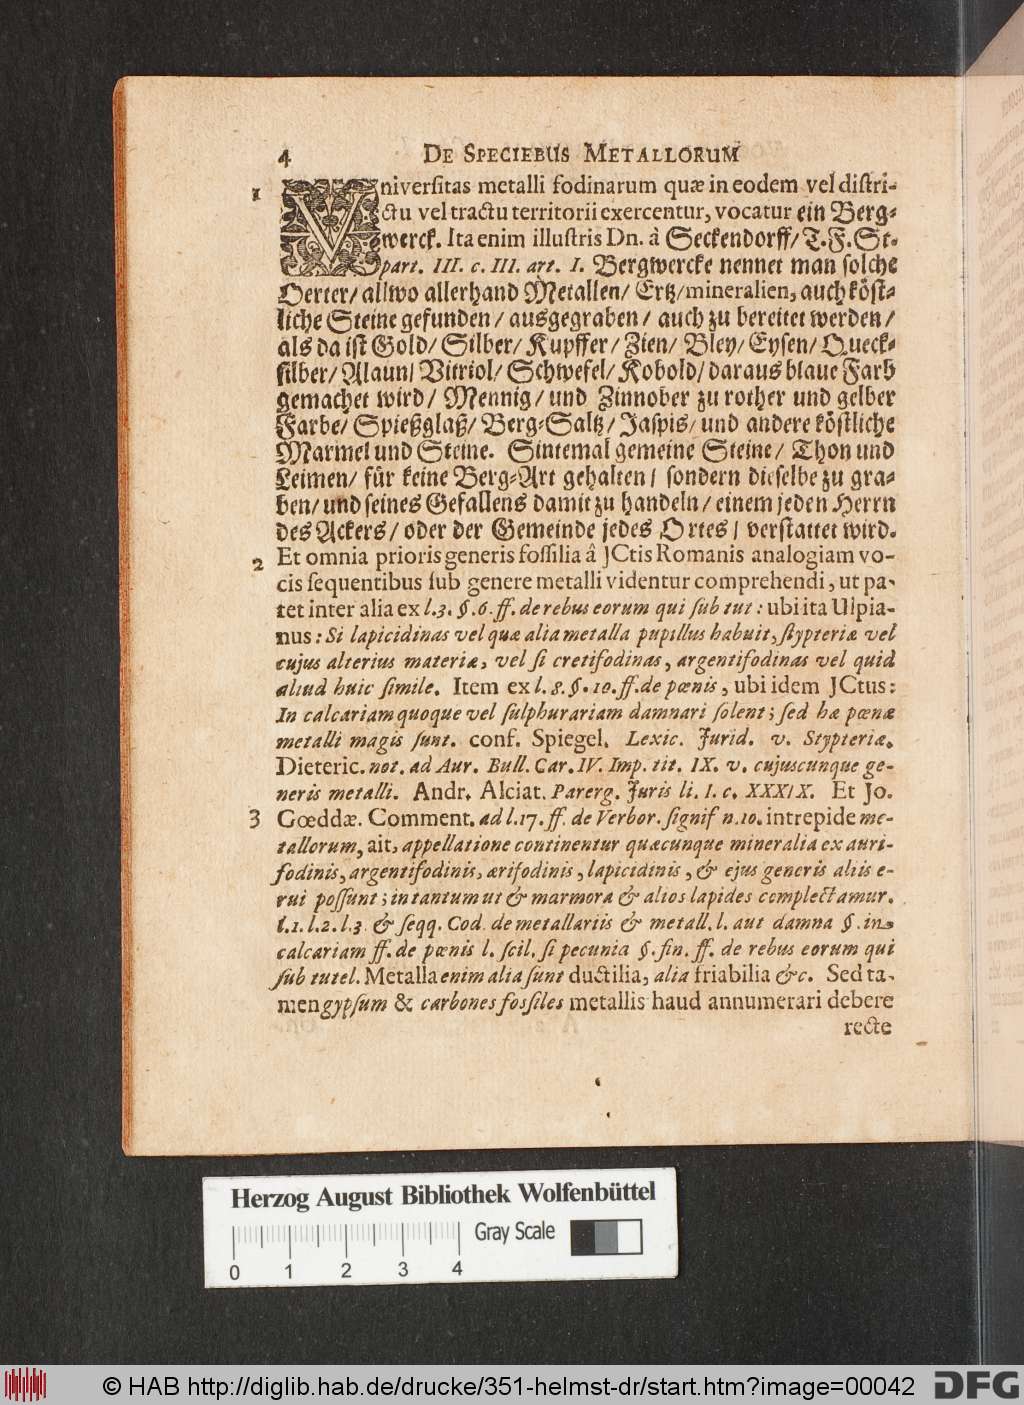 4 DE SPECIEBUS METALLORUM
1 Vniversitas metalli fodinarum quæ in eodem vel distri-
ctu vel tractu territorii exercentur, vocatur ein Berg-
werck. Ita enim illustris Dn. à Seckendorff/ T. F. St.
part. III. c. III. art. I. Bergwercke nennet man solche
Oerter/ allwo allerhand Metallen/ Ertz/ mineralien, auch köst-
liche Steine gefunden/ ausgegraben/ auch zu bereitet werden/
als da ist Gold/ Silber/ Kupffer/ Zien/ Bley/ Eysen/ Queck-
silber/ Alaun/ Vitriol/ Schwefel/ Kobold/ daraus blaue Farb
gemachet wird/ Mennig/ und Zinnober zu rother und gelber
Farbe/ Spießglaß/ Berg-Saltz/ Jaspis/ und andere köstliche
Marmel und Steine. Sintemal gemeine Steine/ Thon und
Leimen/ für keine Berg-Art gehalten/ sondern dieselbe zu gra-
ben/ und seines Gefallens damit zu handeln/ einem jeden Herrn
des Ackers/ oder der Gemeinde jedes Ortes/ verstattet wird.
2 Et omnia prioris generis fossilia â JCtis Romanis analogiam vo-
cis sequentibus sub genere metalli videntur comprehendi, ut pa-
tet inter alia ex l. 3. §. 6. ff. de rebus eorum qui sub tut: ubi ita Ulpia-
nus: Si lapicidinas vel quæ alia metalla pupillus habuit, stypteriæ vel
cujus alterius materiæ, vel si cretifodinas, argentifodinas vel quid
aliud huic simile. Item ex l. 8. §. 10. ff. de pœnis, ubi idem JCtus:
In calcariam quoque vel sulphurariam damnari solent; sed hæ pœnæ
metalli magis sunt. conf. Spiegel. Lexic. Jurid. v. Stypteriæ.
Dieteric. not. ad Aur. Bull. Car. IV. Imp. tit. IX. v. cujuscunque ge-
neris metalli. Andr. Alciat. Parerg. Juris li. I. c. XXXIX. Et Jo.
3 Gœddæ. Comment. ad l. 17. ff. de Verbor. signif n. 10. intrepide me-
tallorum, ait, appellatione continentur quæcunque mineralia ex auri-
fodinis, argentifodinis, ærifodinis, lapicidinis, & ejus generis aliis e-
rui possunt; in tantum ut & marmora & alios lapides complectamur.
l. 1. l. 2. l. 3. & seqq. Cod. de metallariis & metall. l. aut damna §. in
calcariam ff. de pœnis l. scil. si pecunia §. fin. ff. de rebus eorum qui
sub tutel. Metalla enim alia sunt ductilia, alia friabilia &c. Sed ta-
men gypsum & carbones fossiles metallis haud annumerari debere
recte
Herzog August Bibliothek Wolfenbüttel
Gray Scale
0 1 2 3 4
© HAB http://diglib.hab.de/drucke/351-helmst-dr/start.htm?image=00042 DFG